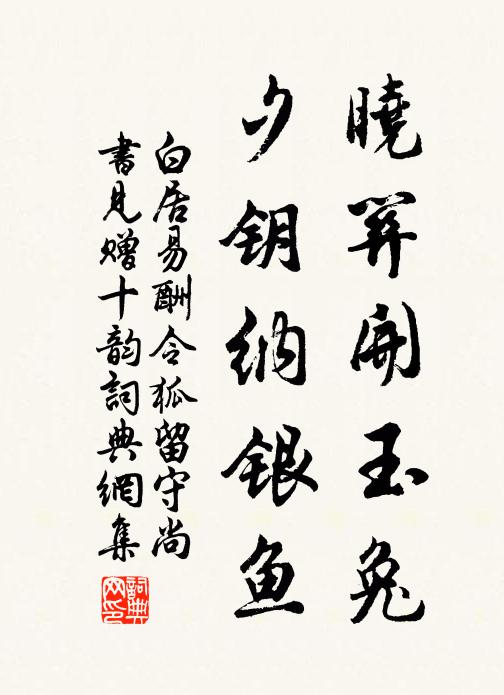 曉关開玉兔
夕钥纳银鱼
白居易酬令狐留守尚
書见赠十韵詞典網集
詞典
网印